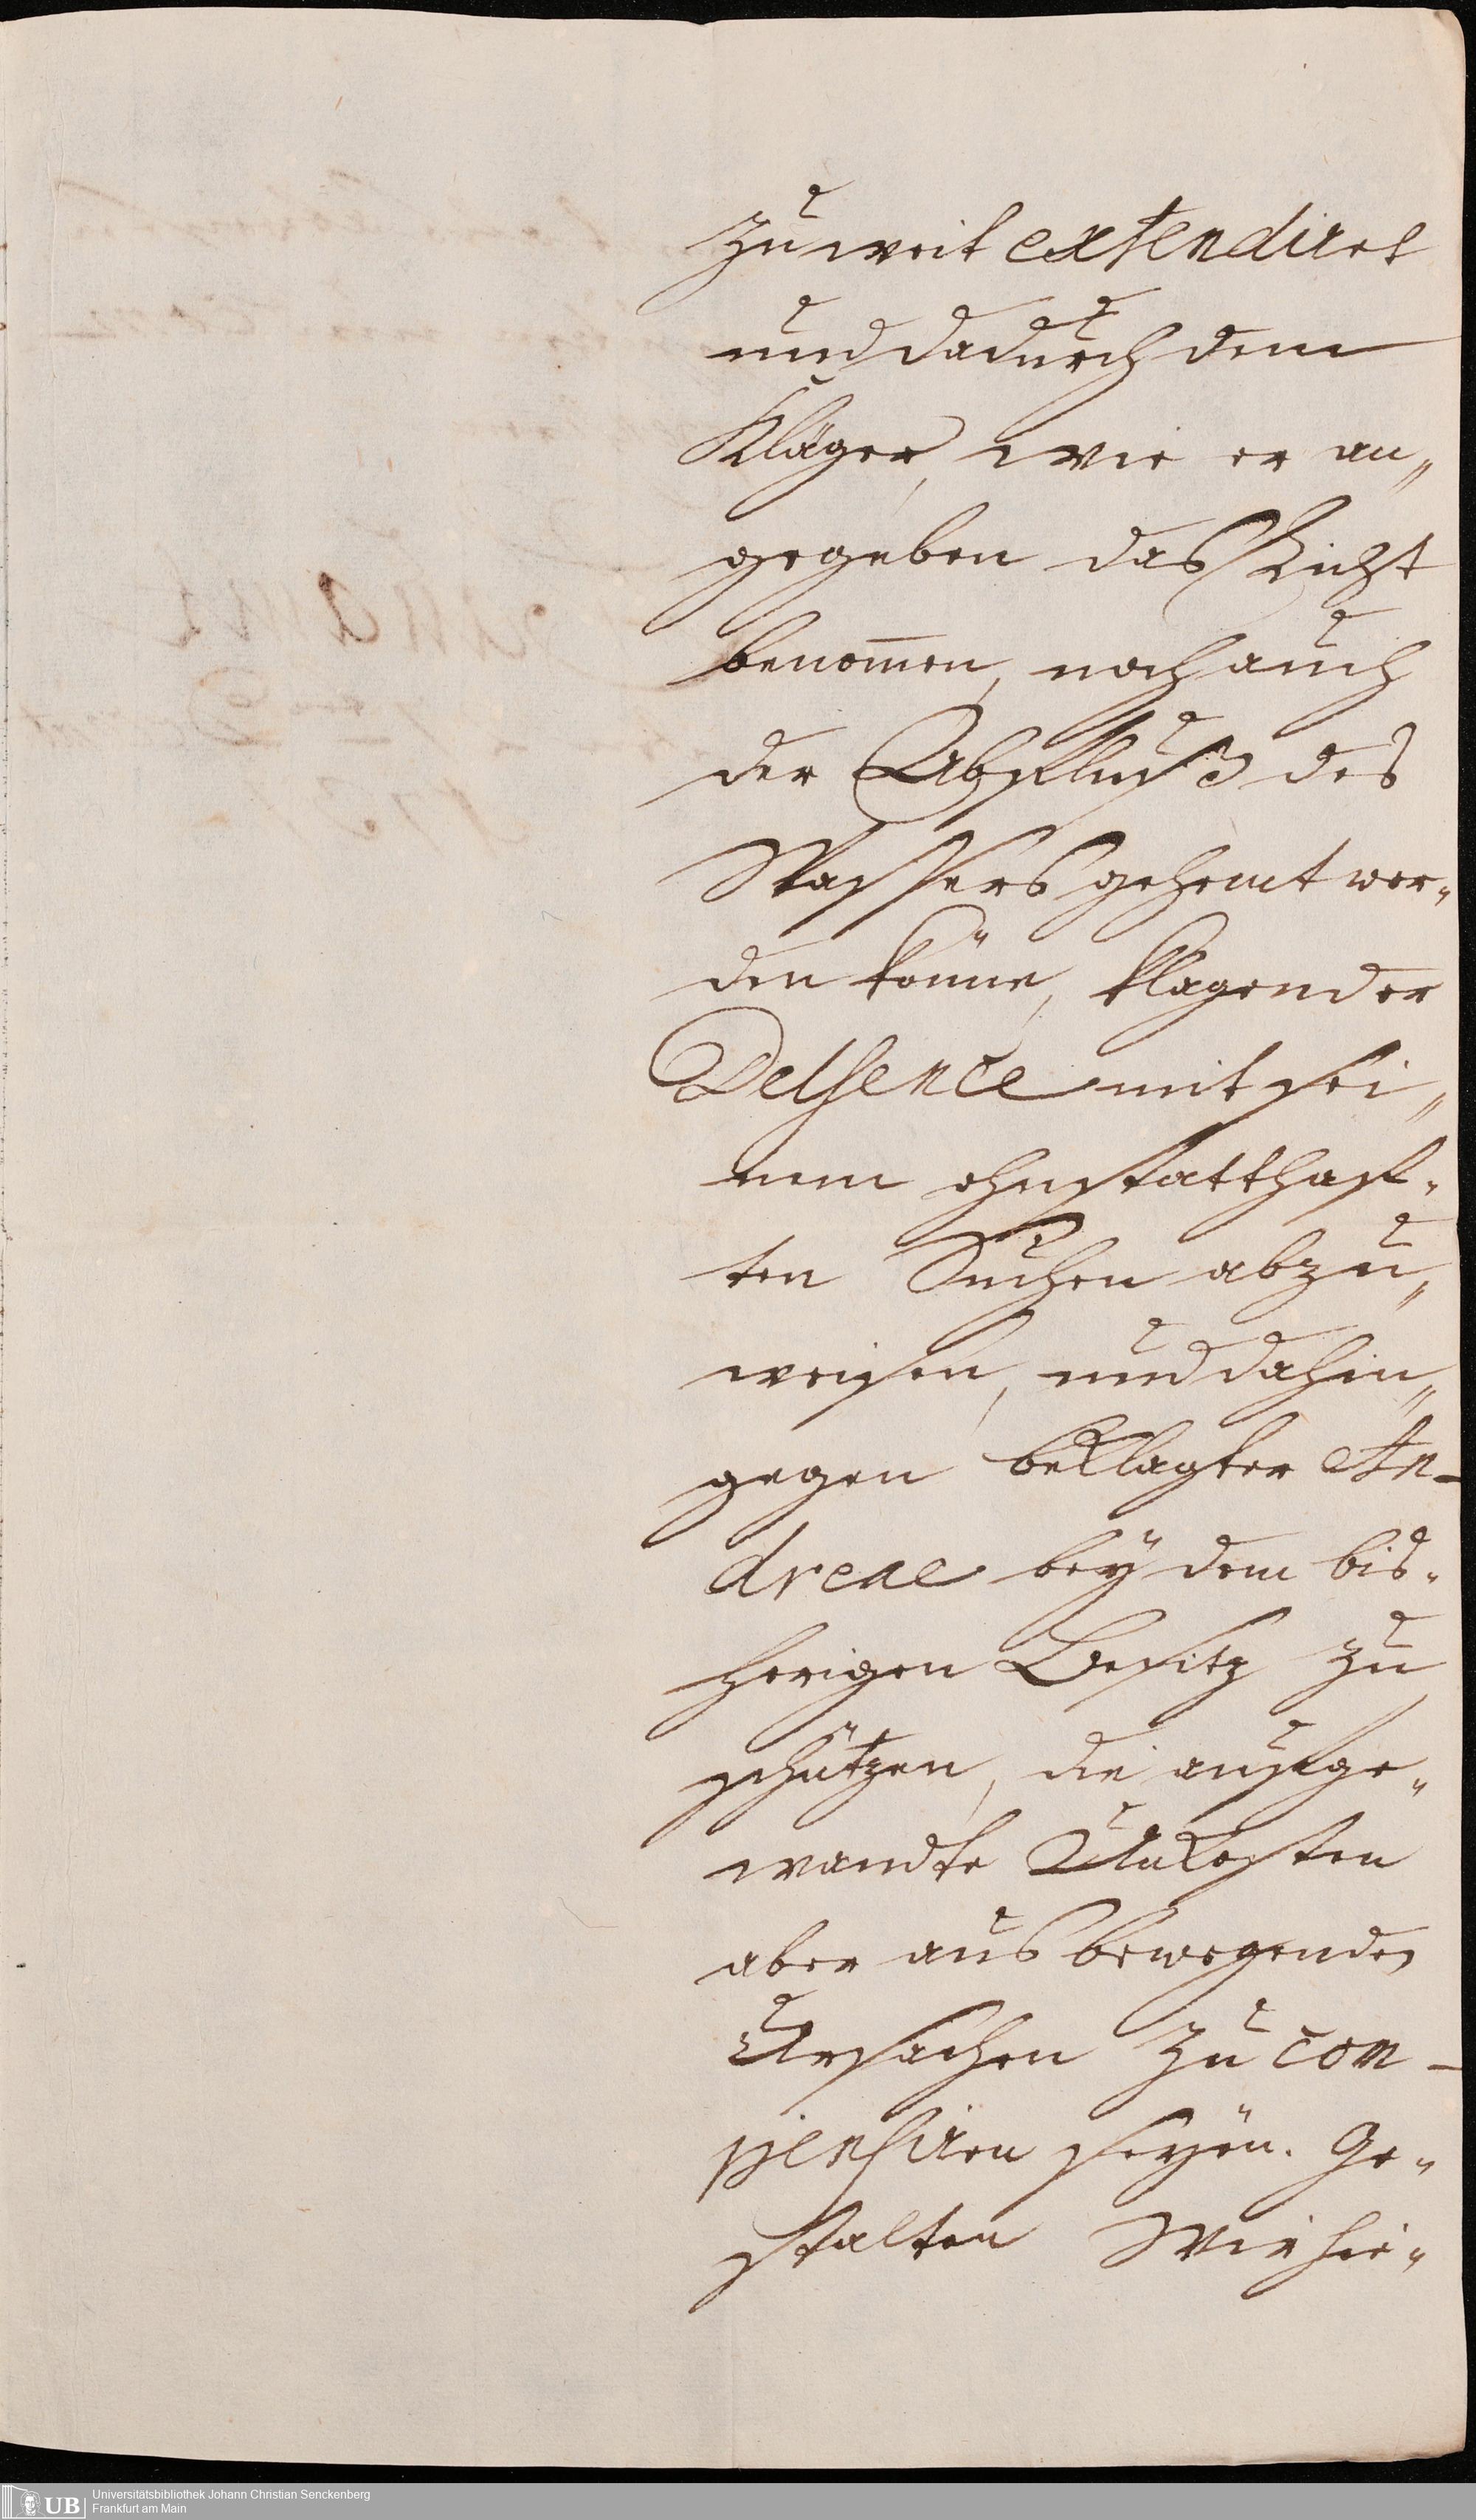 zu weit extendiret
und dadurch dem
Kläger, wie er an„
gegeben das Licht
benom̅en, noch auch
der Abfluß des
Wassers gehemt wer„
den könne, klagender
Delsence mit sei„
nem ohnstatthaf„
ten Suchen abzu„
weisen, und dahin„
gegen beklagter An-
dreae beÿ dem bis„
herigen Besitz zu
schützen, die aufge„
wandte Unkosten
aber aus bewegenden
Ursachen zu com-
pensiren seÿen. Ge„
stalten Wir hie„
UB
Universitätsbibliothek Johann Christian Senckenberg
Frankfurt am Main